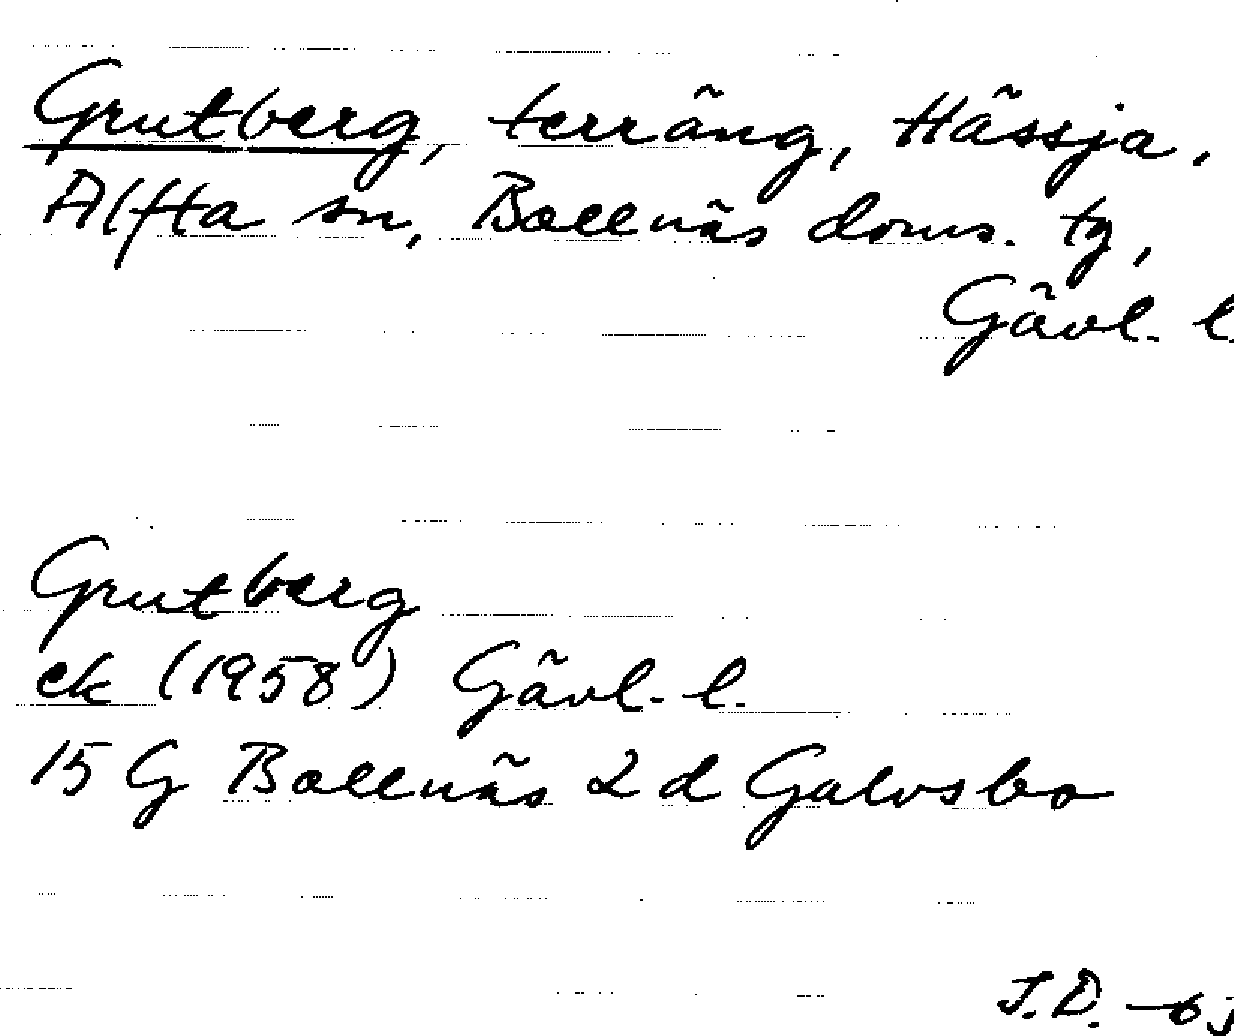 Grutberg, terräng, Hässja,
Alfta sn, Bollnäs doms. tg,
Gävl. l.
Grutberg
ek (1958) Gävl. l.
15 G Bollnäs 2 d Galvsbo
J.D. -65